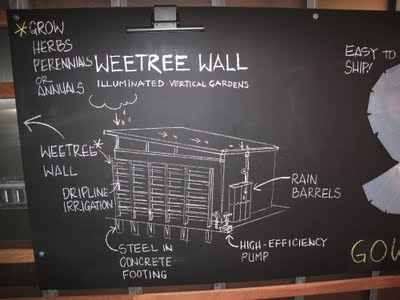 *GROW
HERBS
PERENNIALS
OR
ANNUALS
WEETREE WALL
ILLUMINATED VERTICAL GARDENS
EASY TO
SHIP!
WEETREE*
WALL
DRIPLINE
IRRIGATION
RAIN
BARRELS
STEEL IN
CONCRETE
FOOTING
HIGH-EFFICIENCY
PUMP